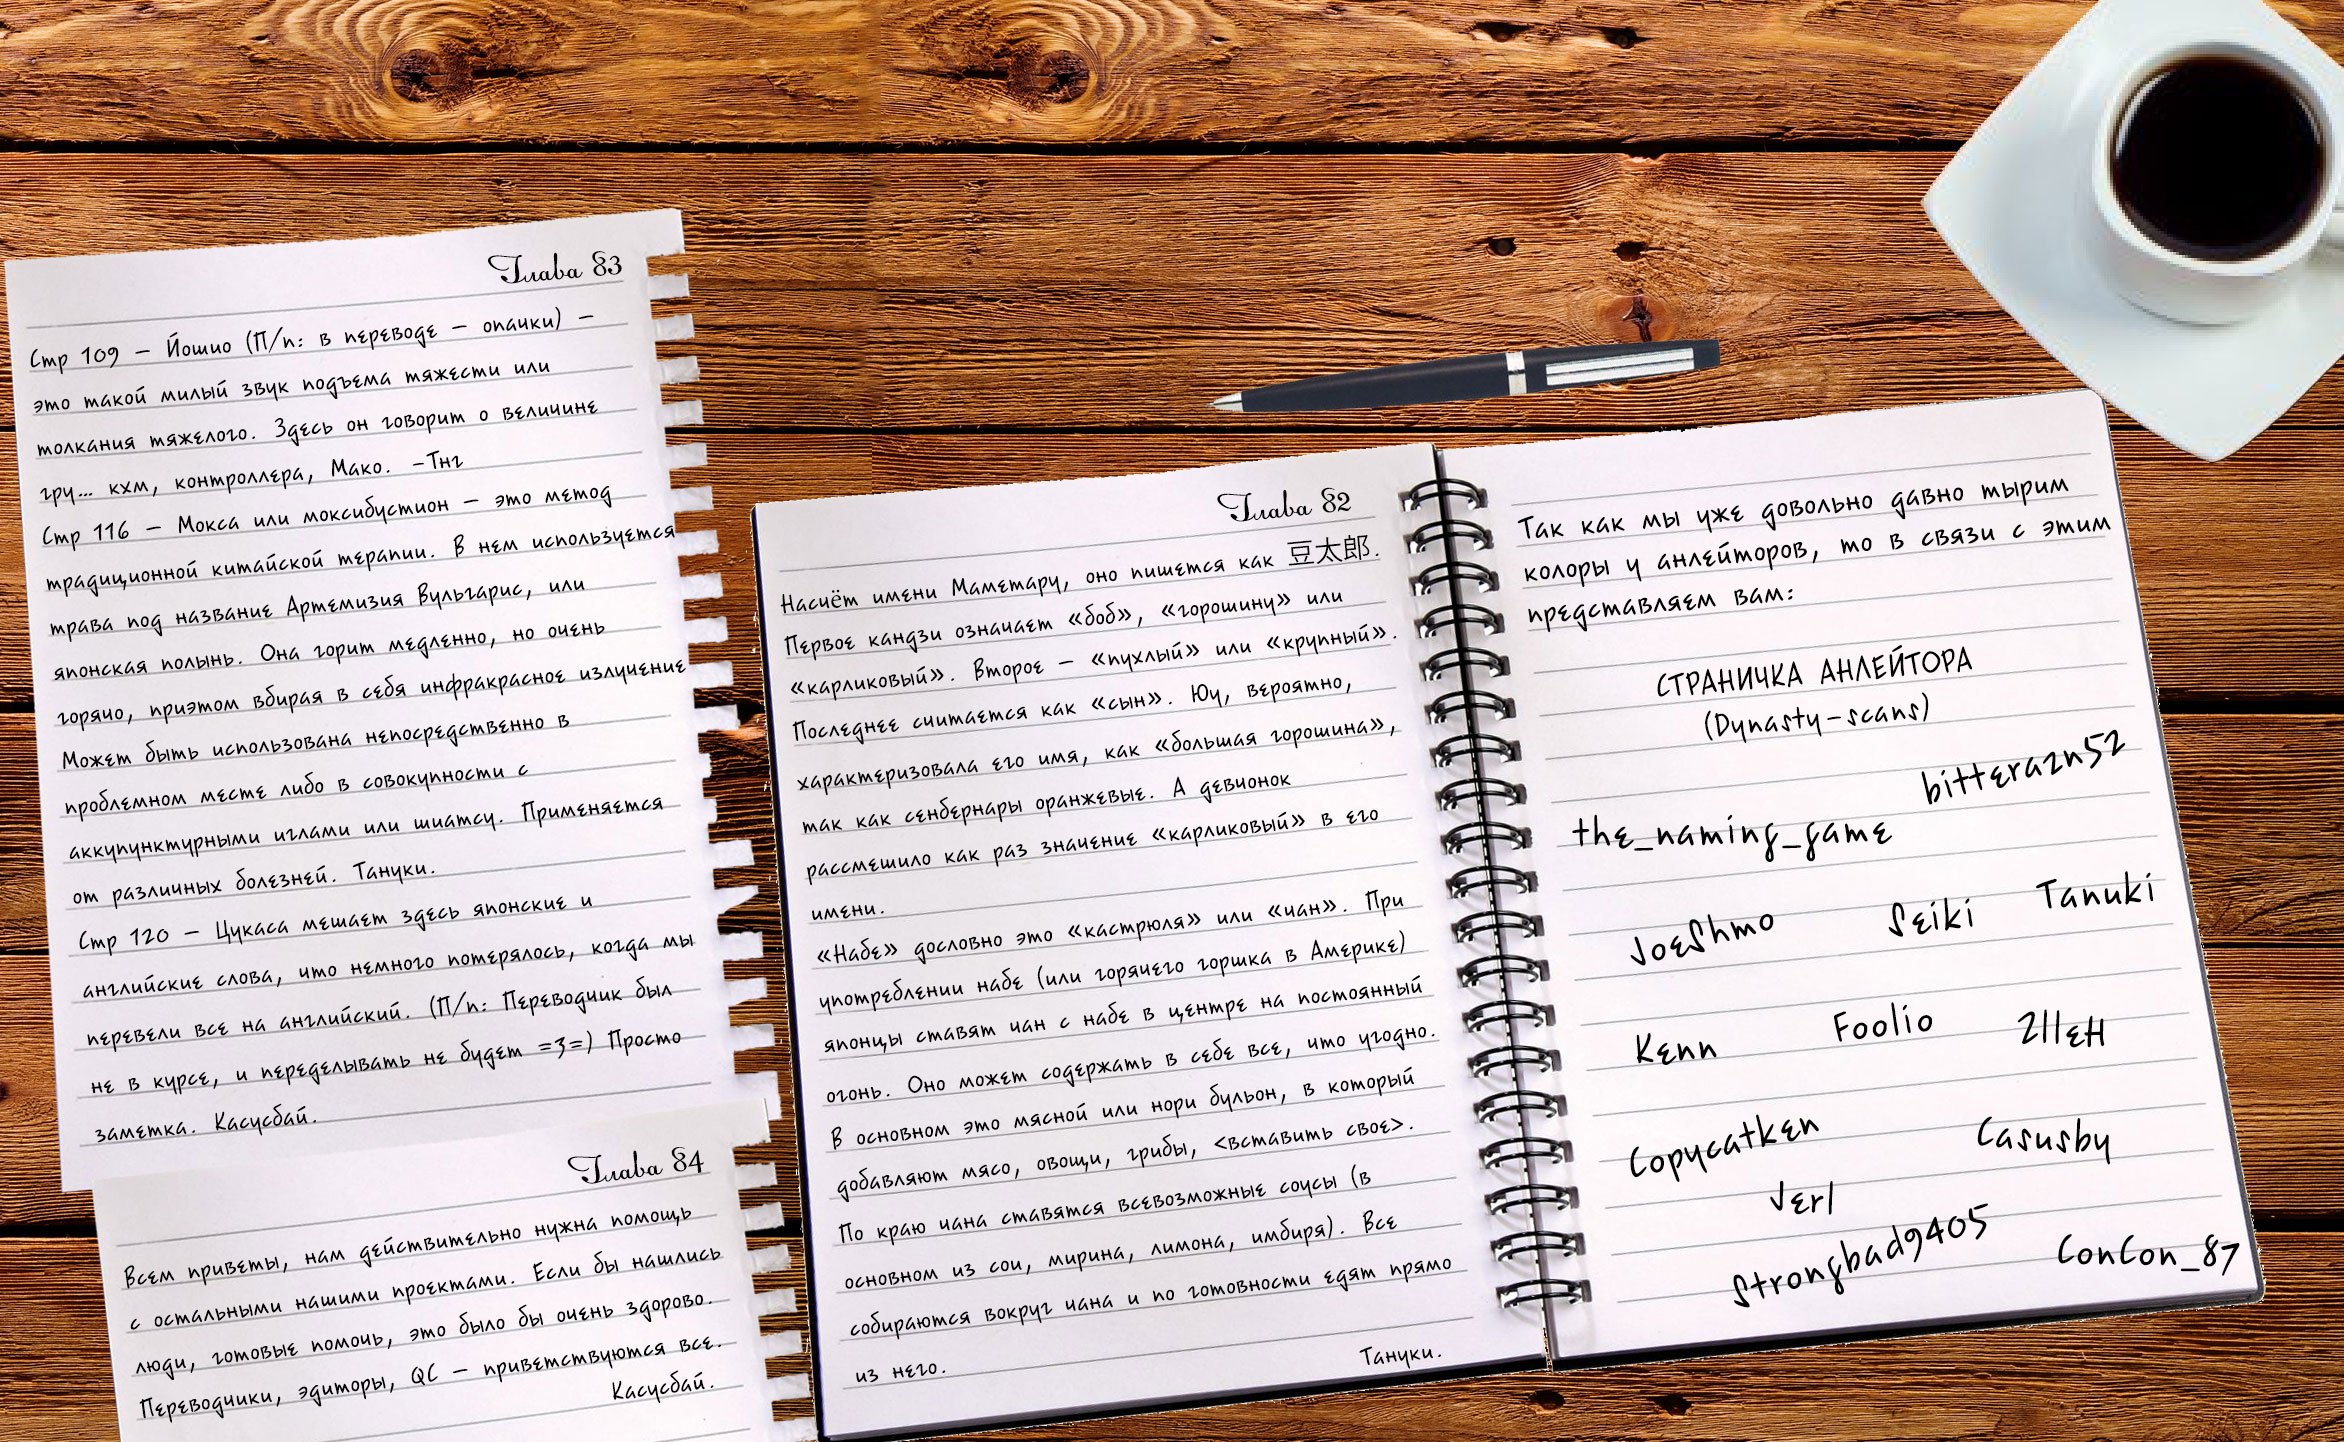 Глава 83
Стр 109 – Йошио (П/п: в переводе – опачки) –
это такой милый звук подъема тяжести или
толкания тяжелого. Здесь он говорит о величине
гру... кхм, контроллера, Мако. -Тнг
Стр 116 – Мокса или моксибустион – это метод
традиционной китайской терапии. В нем используется
трава под название Артемизия Вульгарис, или
японская полынь. Она горит медленно, но очень
горячо, приэтом вбирая в себя инфракрасное излучение
Может быть использована непосредственно в
проблемном месте либо в совокупности с
аккупунктурными иглами или шиатсу. Применяется
от различных болезней. Тануки.
Стр 120 – Цукаса мешает здесь японские и
английские слова, что немного потерялось, когда мы
перевели все на английский. (П/п: Переводчик был
не в курсе, и переделывать не будет =3=) Просто
заметка. Касусбай.
Глава 84
Всем приветы, нам действительно нужна помощь
с остальными нашими проектами. Если бы нашлись
люди, готовые помочь, это было бы очень здорово.
Переводчики, эдиторы, QC – приветствуются все.
Касусбай.
Глава 82
Насчёт имени Маметару, оно пишется как 豆太郎.
Первое кандзи означает «боб», «горошину» или
«карликовый». Второе – «пухлый» или «крупный».
Последнее считается как «сын». Юу, вероятно,
характеризовала его имя, как «большая горошина»,
так как сенбернары оранжевые. А девчонок
рассмешило как раз значение «карликовый» в его
имени.
«Набе» дословно это «кастрюля» или «чан». При
употреблении набе (или горячего горшка в Америке)
японцы ставят чан с набе в центре на постоянный
огонь. Оно может содержать в себе все, что угодно.
В основном это мясной или нори бульон, в который
добавляют мясо, овощи, грибы, <вставить свое>.
По краю чана ставятся всевозможные соусы (в
основном из сои, мирина, лимона, имбиря). Все
собираются вокруг чана и по готовности едят прямо
из него.
Тануки.
Так как мы уже довольно давно тырим
колоры у анлейторов, то в связи с этим
представляем вам:
СТРАНИЧКА АНЛЕЙТОРА
(Dynasty-scans)
bitterazn52
the_naming_game
JoeShmo Seiki Tanuki
Kenn Foolio 2lleH
Copycatken Casusby
Verl
Strongbad9405 ConCon_87